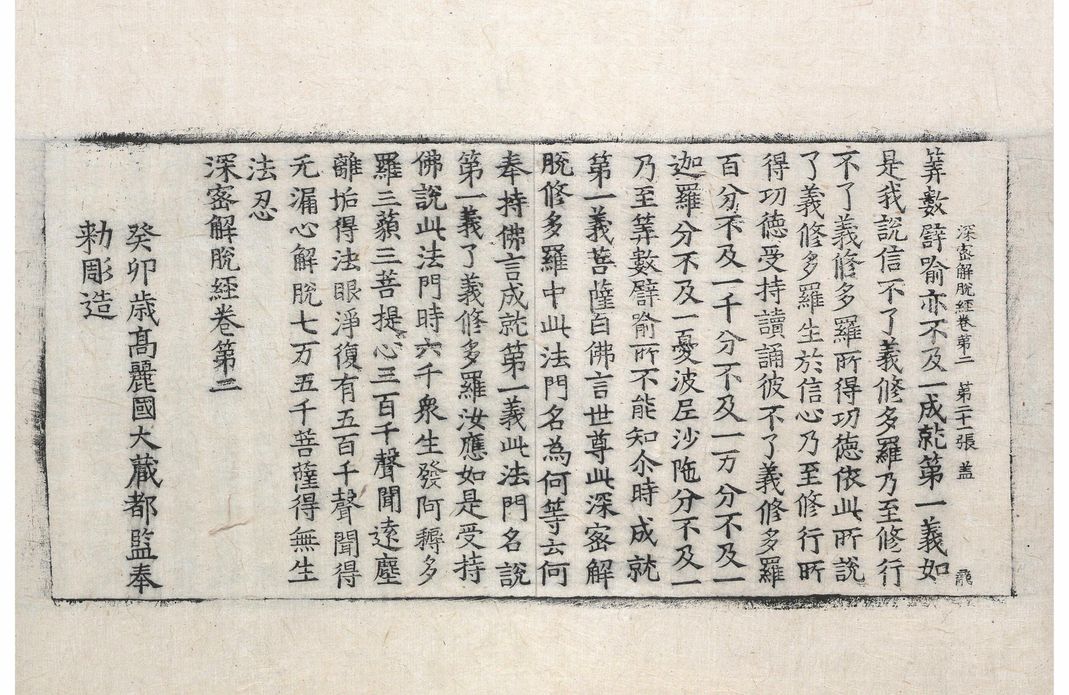 深密解脫經卷第二　第二十一張　盖
筭數譬喻亦不及一成就第一義如
是我說信不了義修多羅乃至修行
不了義修多羅所得功德依此所說
了義修多羅生於信心乃至修行所
得功德受持讀誦彼不了義修多羅
百分不及一千分不及一万分不及一
迦羅分不及一憂波尼沙陁分不及一
乃至筭數譬喻所不能知尒時成就
第一義菩薩白佛言世尊此深密解
脫修多羅中此法門名為何等云何
奉持佛言成就第一義此法門名說
第一義了義修多羅汝應如是受持
佛說此法門時六千衆生發阿耨多
羅三藐三菩提心三百千聲聞遠塵
離垢得法眼淨復有五百千聲聞得
无漏心解脫七万五千菩薩得無生
法忍
深密解脫經卷第二
癸卯歲高麗國大藏都監奉
勅彫造